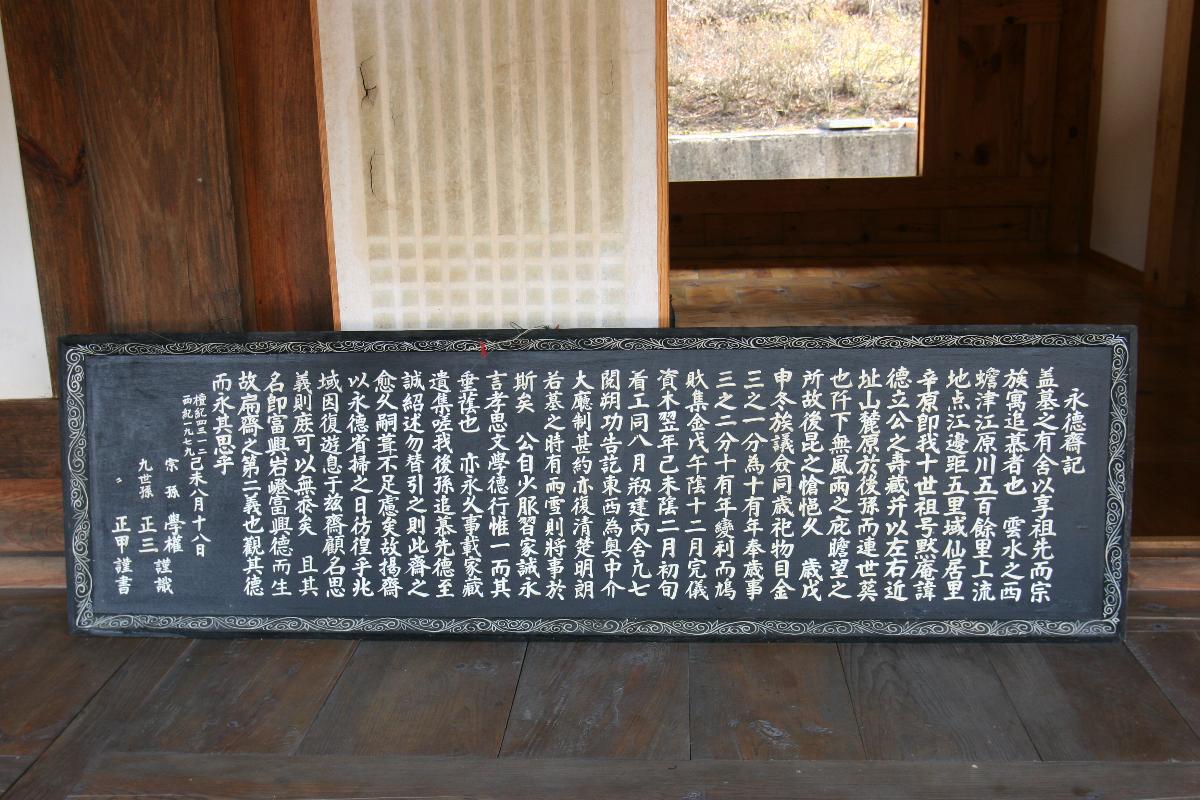 永德齋記
盖墓之有舍以享祖先而宗
族寓追慕者也 雲水之西
蟾津江原川五百餘里上流
地点江邊距五里域仙居里
辛原即我十世祖号默庵諱
德立公之壽藏并以左右近
址山麓原於後孫而連世葬
也阡下無風雨之庇瞻望之
所故後昆之愴悒久 歲戊
申冬族議僉同歲祀物目金
三之一分為十有年奉歲事
三之二分十有年變利而鳩
財集金戊午陰十二月完儀
資木翌年己未陰二月初旬
着工同八月刱建丙舍凢七
閱朔功告訖東西為奥中介
大廳制甚約亦復清楚明朗
若墓之時有雨雪則將事於
斯矣 公自少服習家誡永
言孝思文學德行惟一而其
垂蔭也 亦永久事載家蔵
遺集嗟我後孫追慕先德至
誠紹述勿替引之則此齋之
愈久嗣葺不足慮矣故揚齋
以永德省掃之日彷徨乎兆
域因復遊息于兹齋顧名思
義則庶可以無忝矣 且其
名即富興岩嶝富興德而生
故扁齋之第二義也觀其德
而永其思乎
檀紀四三一二
西紀一九七九
己未八月十八日
宗孫 學權 謹識
九世孫 正三
〃 正甲 謹書